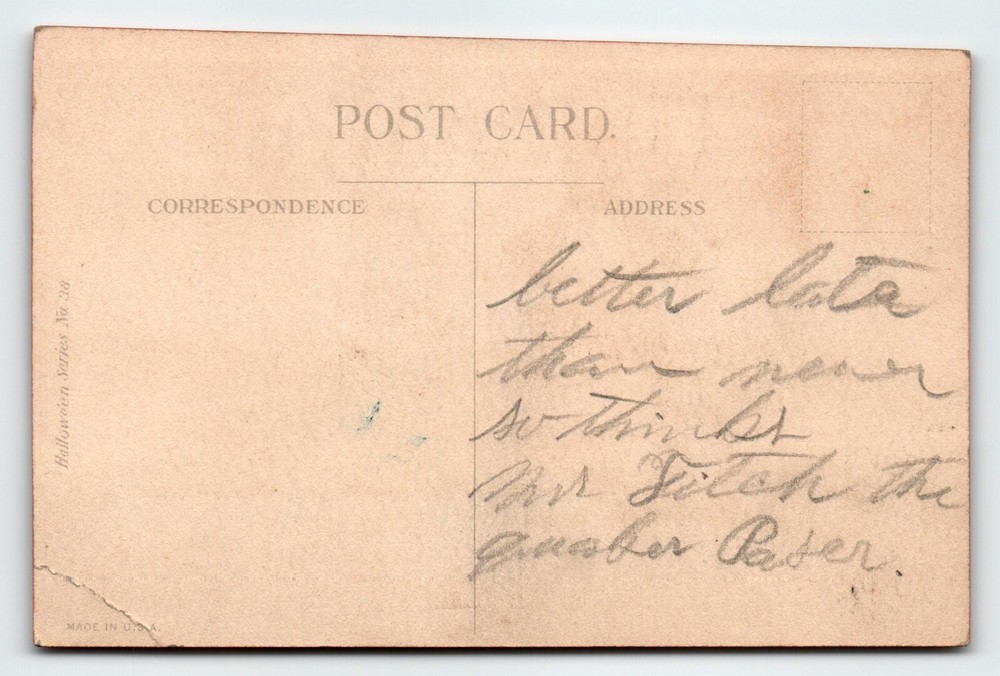 POST CARD.
CORRESPONDENCE
ADDRESS
Halloween Series No 38
better late
than never
so thinks
Mr Fitch the
MADE IN U.S.A.